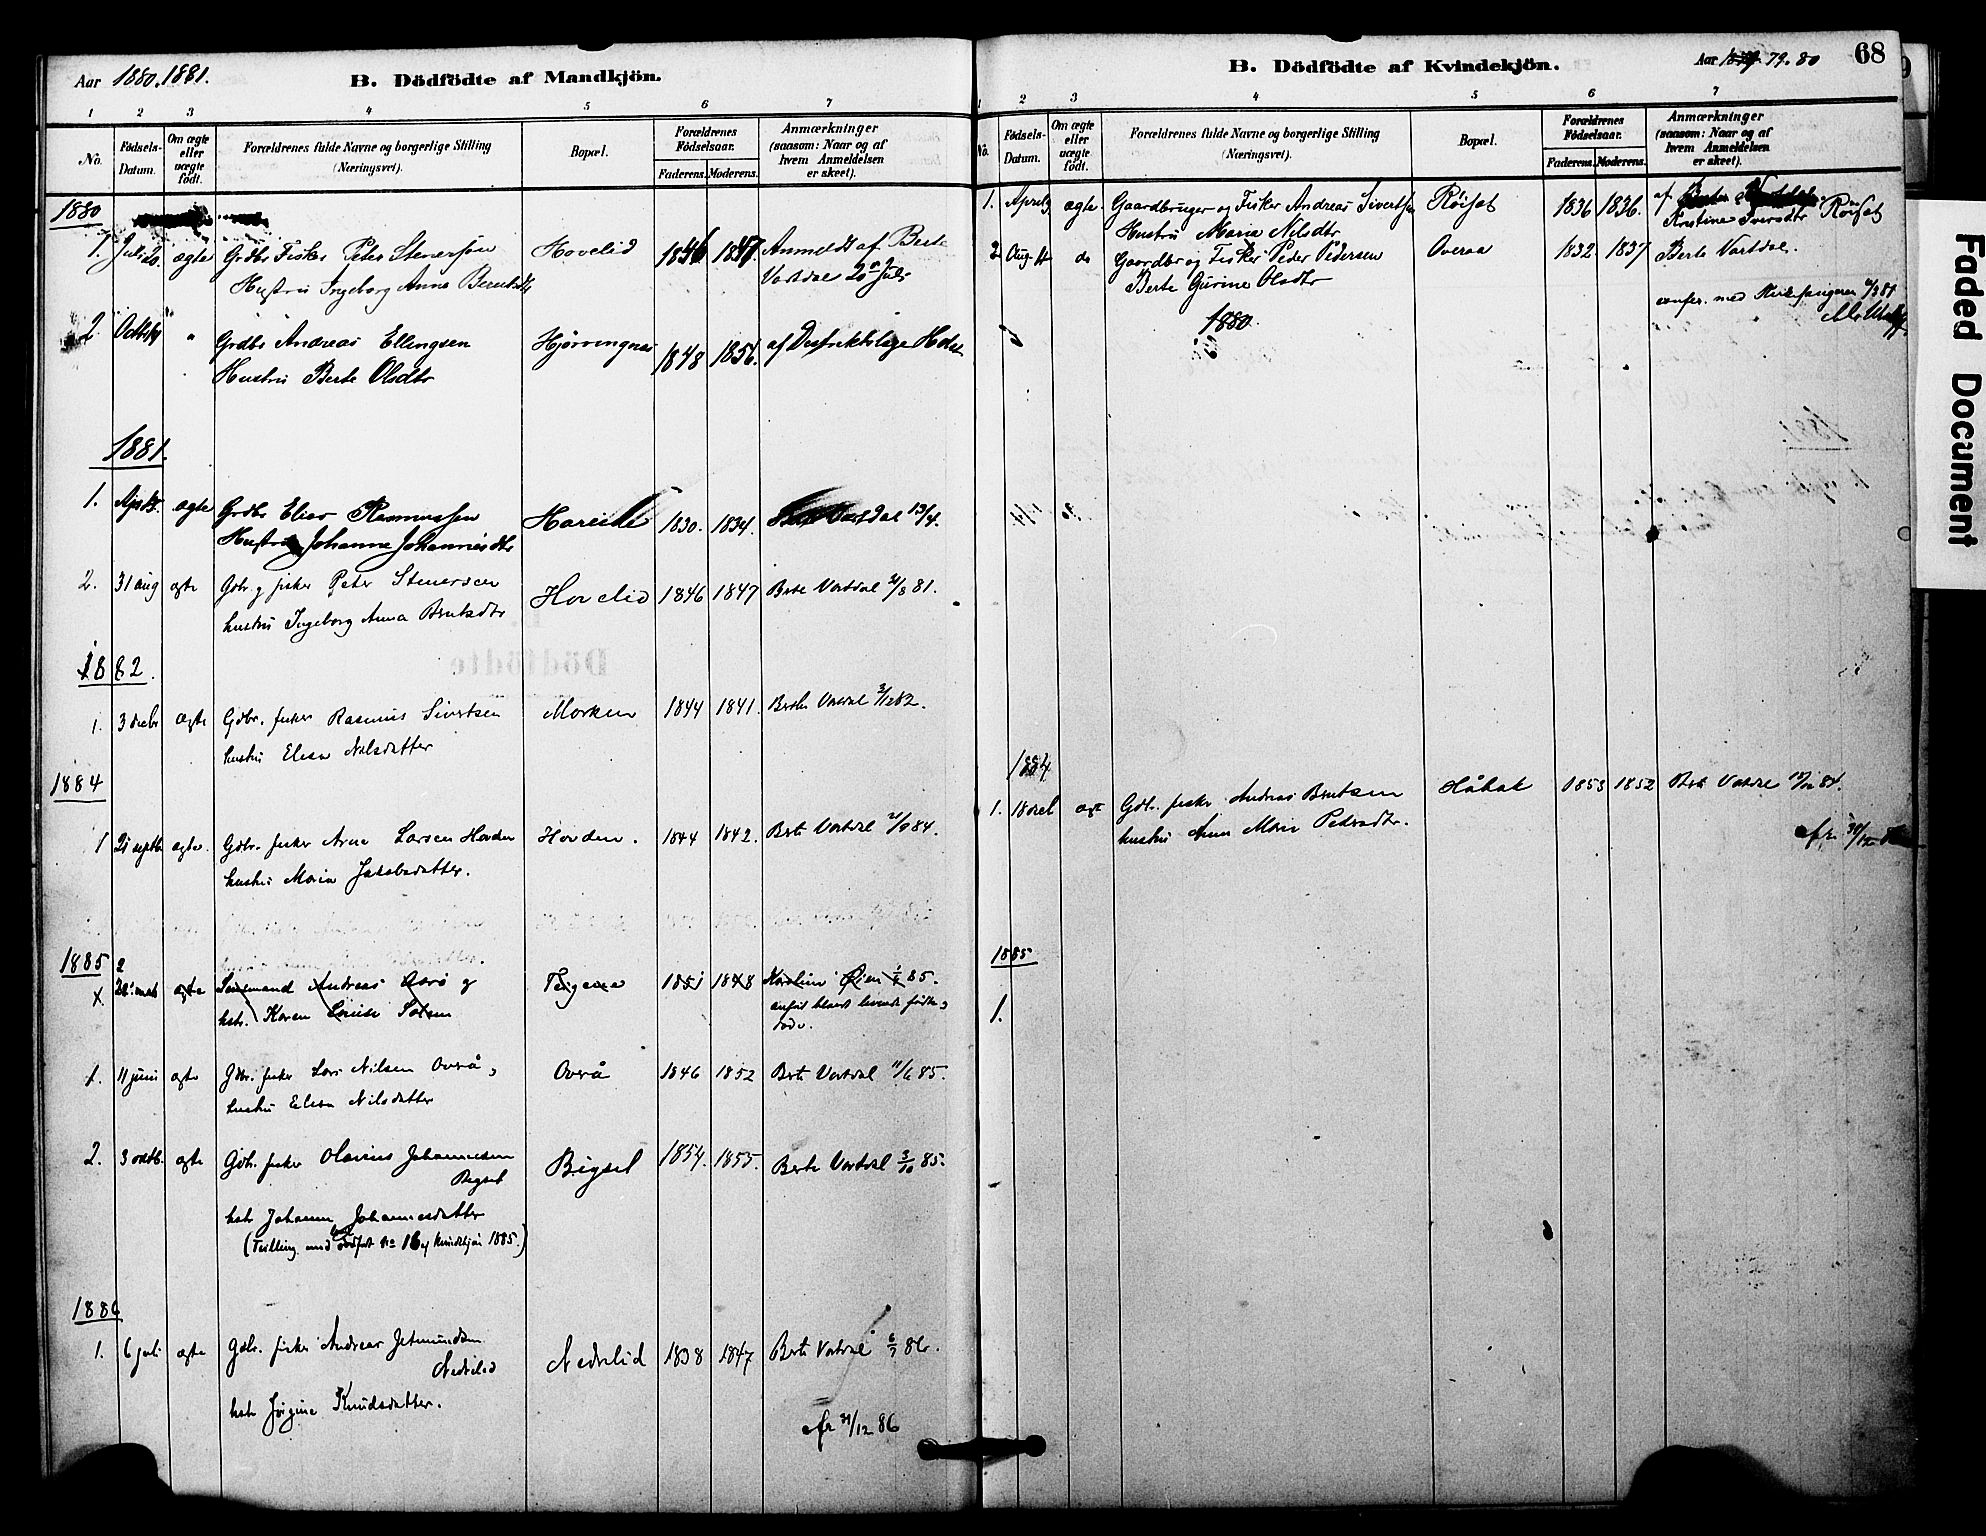 Aar 1880.1881.
B. Dödfödte af Mandkjön.
1 2 3 4 5 6 7
No.
Födsels-Datum.
Om ægte eller uægte födt.
Forældrenes fulde Navne og borgerlige Stilling (Næringsvei).
Bopæl.
Forældrenes Födselsaar.
Faderens. Moderens.
Anmærkninger (saasom: Naar og af hvem Anmeldelsen er skeet).
1880
1. Juli ægte Grdbr Fisker Peter Stenersen Hovelid 1846 1847 Anmeldt af Berte
Hustru Ingeborg Anna Berntsdtr Vartdal Juli
2 Grdbr Andreas Ellingsen Hjörringnes 1848 1856. af Destriktslæge
Hustru Berte Olsdtr
1881.
1. ægte Grdbr Elias Rasmussen Hareide 1830. 1834. Vartdal 13/4.
Hustru Johanne Johannesdtr
2. 31 aug ægte Gdbr og fisker Peter Stenersen Hovelid 1846 1847 Berte Vartdal 31/8 81.
hustru Ingeborg Anna Berntsdtr
Dödfödte
1882.
1. 3 decbr ægte Gdbr. fisker Rasmus Sivertsen Morken 1844 1841. Berte Vartdal 3/12 82.
hustru Elisa Nilsdatter
1884
1 21 septb. ægte. Gdbr. fisker Arne Larsen Hovden Hovden. 1844 1842. Berte Vartdal 21/9 84.
hustru Maria Jakobsdatter.
1885
2
x ægte Andreas og 1851 1848 Karoline Øien 85.
hstr. Karen Louise anført blandt levende fødte
døde.
1. 11 juni ægte Gdbr. fisker Lars Nilsen Overå, Overå 1846 1852 Berte Vartdal 11/6 85.
hustru Elisa Nilsdatter
2. 3 octb. ægte Gdbr. fisker Olavius Johannesen Bigset 1854. 1855. Berte Vartdal 3/10 85.
Bigset
hstr Johanna Johannesdatter
(Tvilling med No 16 af Kvindekjön 1885.)
1886
1. 6 juli ægte Gdbr. fisker Andreas Jetmundsen Nedrelid 1838 1847 Berte Vartdal 6/7 86.
Nedrelid
hstr Jörgine Knudsdatter.
afsl. 31/12 86
B. Dödfödte af Kvindekjön.
Aar 1879. 79. 80
68
1 2 3 4 5 6 7
No.
Födsels-Datum.
Om ægte eller uægte födt.
Forældrenes fulde Navne og borgerlige Stilling (Næringsvei).
Bopæl.
Forældrenes Födselsaar.
Faderens. Moderens.
Anmærkninger (saasom: Naar og af hvem Anmeldelsen er skeet).
1. April ægte. Gaardbruger og Fisker Andreas Sivertsen Röiset 1836 1836. af
Hustru Maria Nilsdtr Kristine Iversdtr Röiset
2 Aug. do Gaardbr og Fisker Peder Pedersen Overaa 1832 1837 Berte Vartdal.
Berte Gurine Olsdtr
1880
1884
1. 18 decb ægte Gdbr. fisker Andreas Berntsen Håbak 1853 1852 Berte Vartdal 18/12 84.
hustru Anne Marie Pedersdtr.
1885
1.
Faded Document